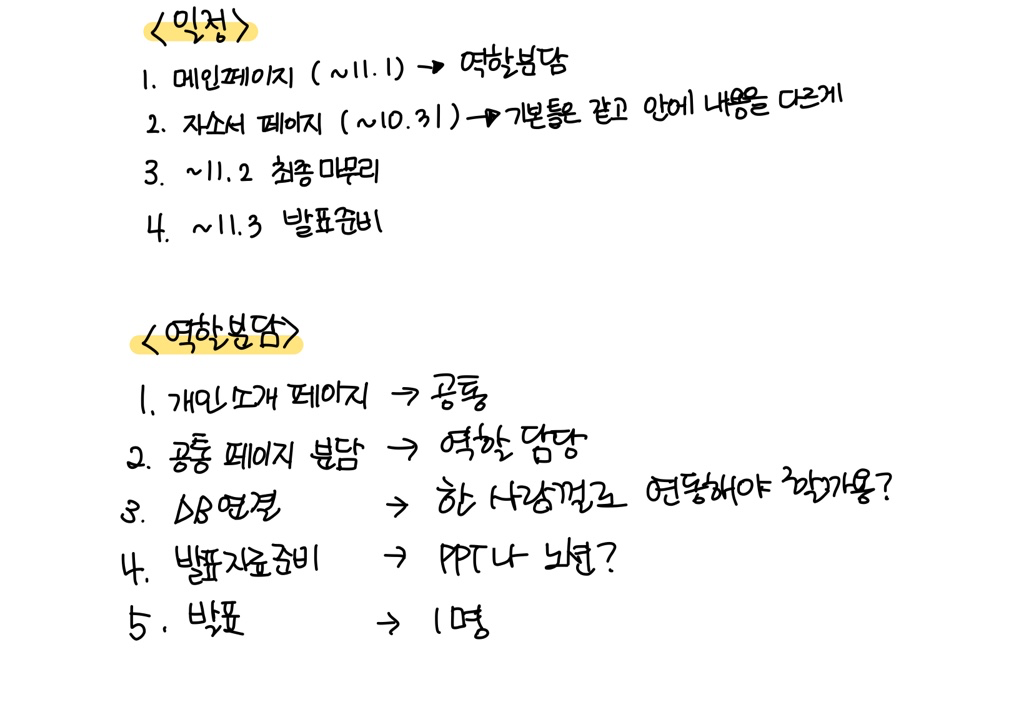 <일정>
1. 메인페이지 (~11.1) → 역할분담
2. 자소서 페이지 (~10.31) → 기본틀은 같고 안에 내용을 다르게
3. ~11.2 최종마무리
4. ~11.3 발표준비
<역할분담>
1. 개인소개 페이지 → 공통
2. 공통 페이지 분담 → 역할 담당
3. DB연결 → 한 사람껄로 연동해야
4. 발표자료준비 → PPT나
5. 발표 → 1명